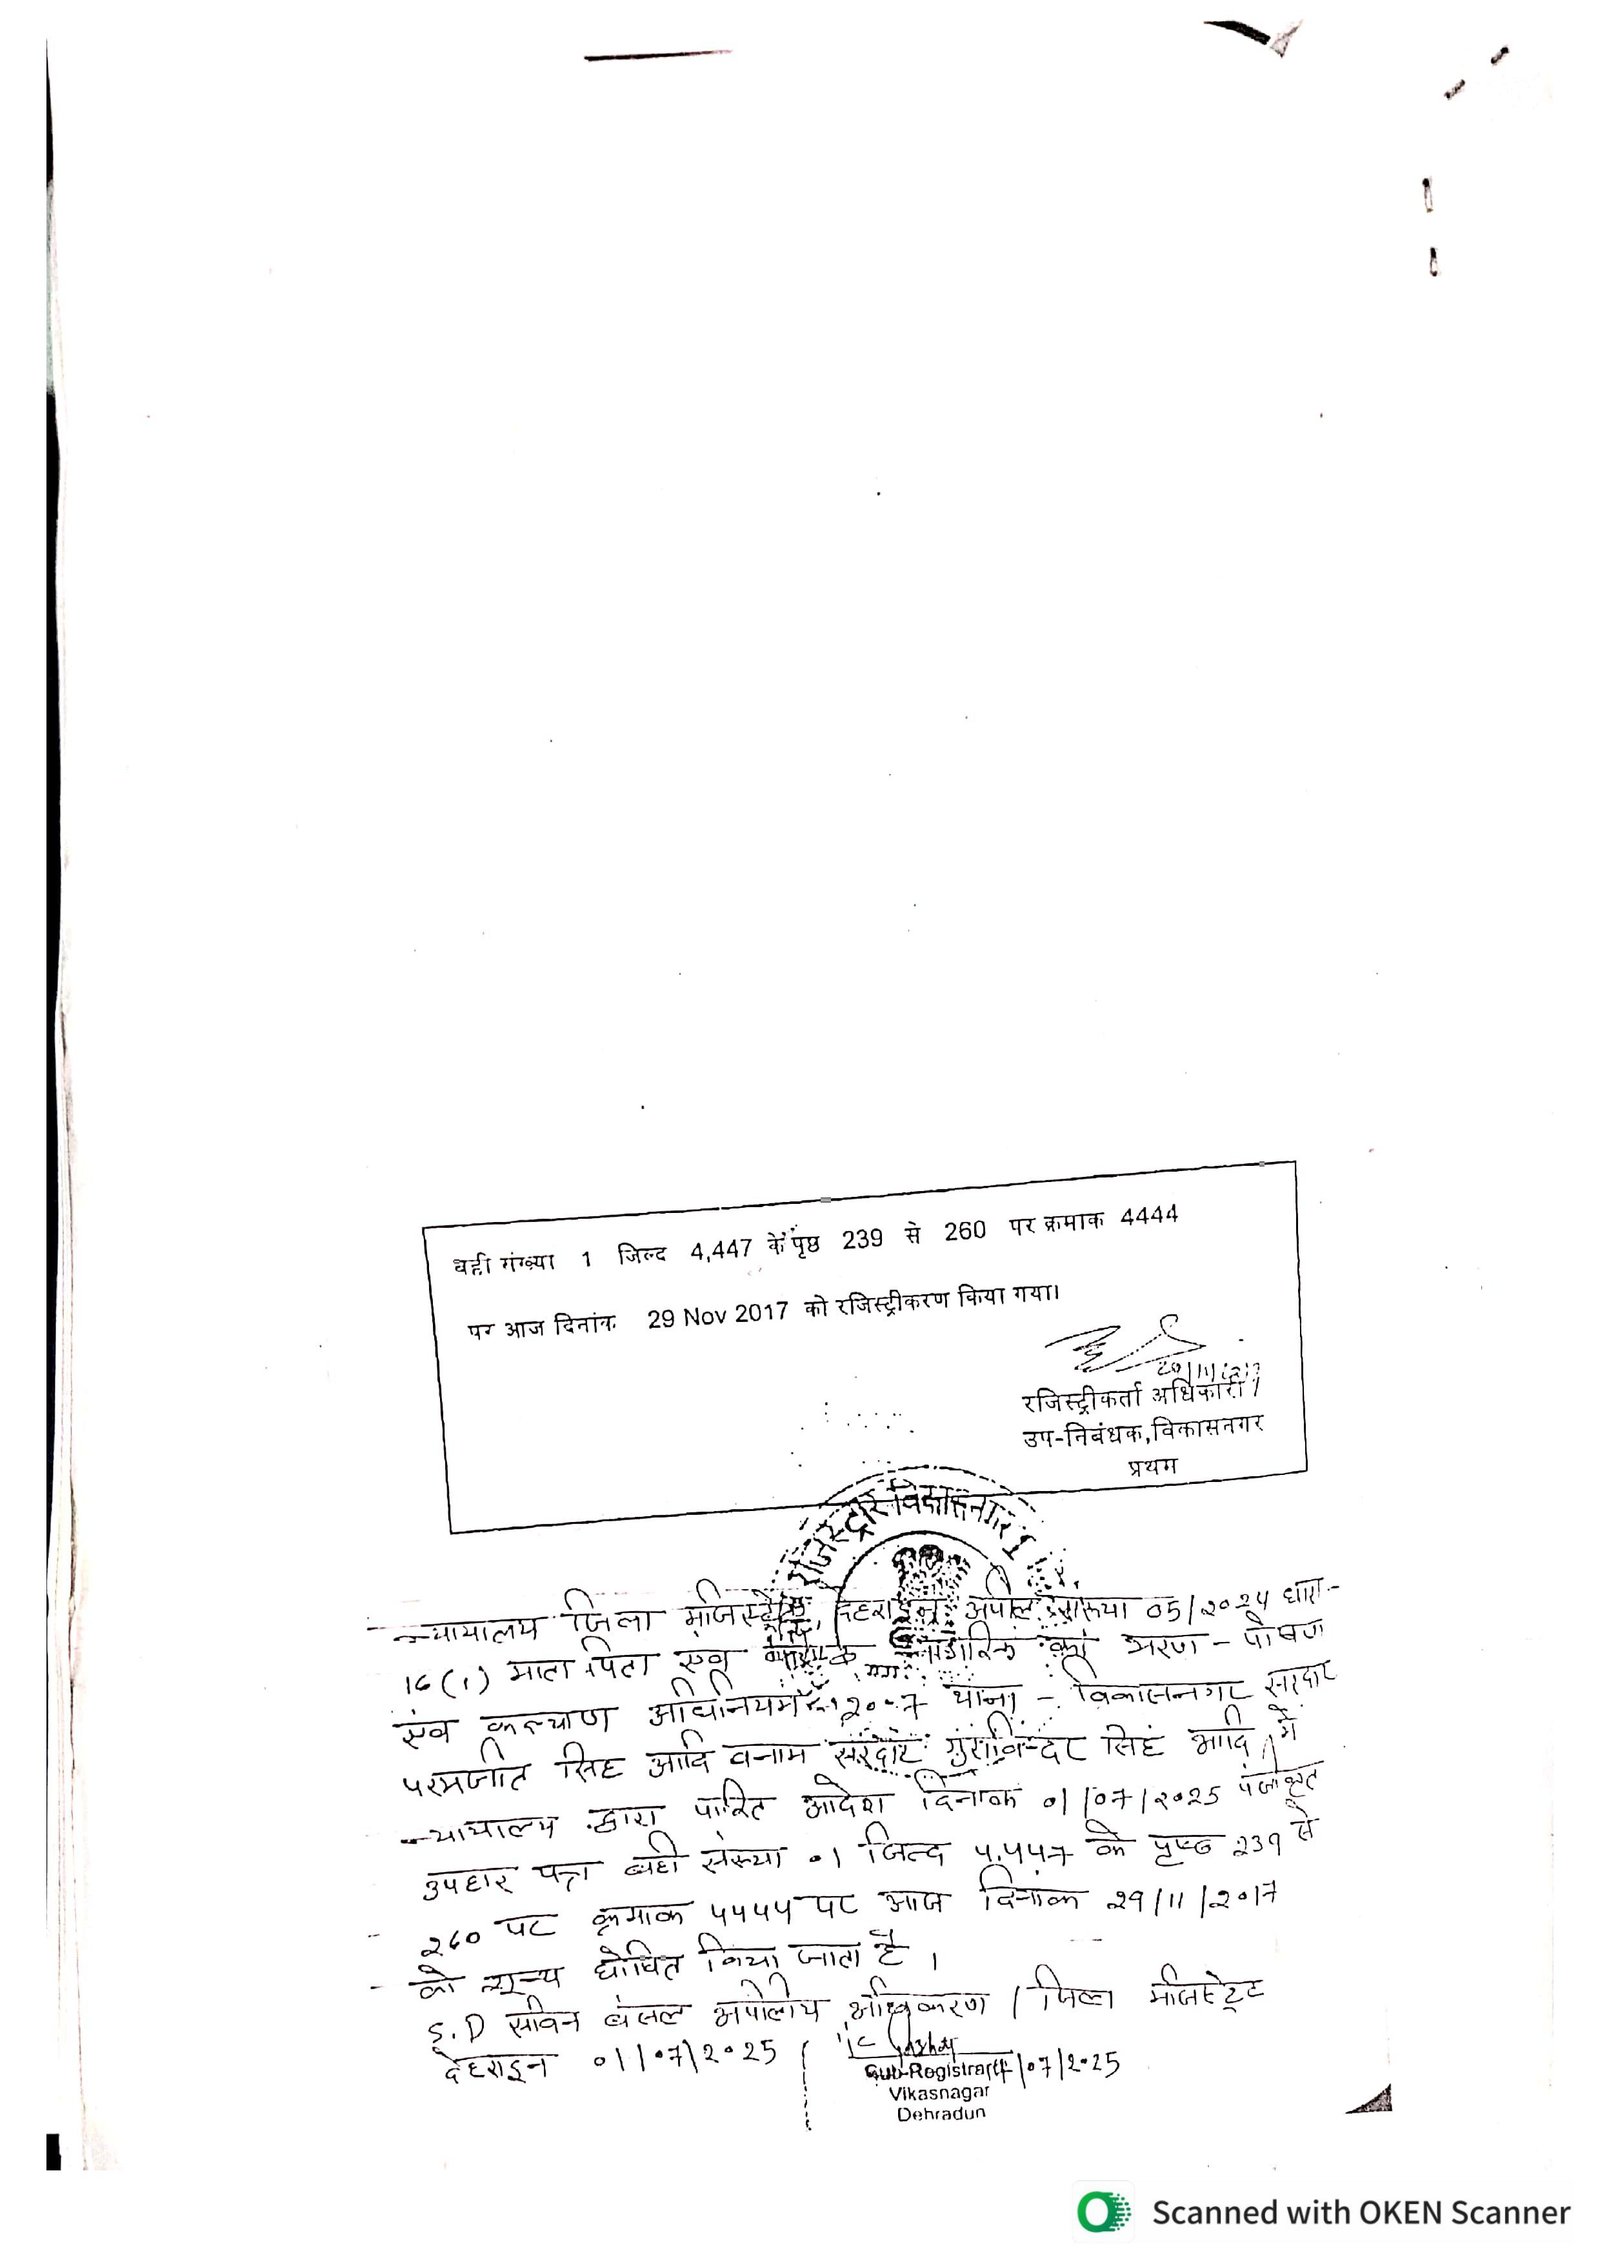 बही संख्या 1 जिल्द 4,447 के पृष्ठ 239 से 260 पर क्रमांक 4444
पर आज दिनांक 29 Nov 2017 को रजिस्ट्रीकरण किया गया।
रजिस्ट्रीकर्ता अधिकारी /
उप-निबंधक,विकासनगर
प्रथम
न्यायालय जिला मजिस्ट्रेट, देहरादून अपील संख्या 05/2024 धारा-
16(1) माता पिता एवं नागरिक का भरण-पोषण
एंव कल्याण अधिनियम 2007 थाना - विकासनगर सरदार
परमजीत सिंह आदि बनाम सरदार गुरविन्दर सिंह आदि में
न्यायालय द्वारा पारित आदेश दिनांक 01/07/2025 पंजीकृत
उपहार पत्र बही संख्या 01 जिल्द 4,447 के पृष्ठ 239 से
260 पर क्रमांक 4444 पर आज दिनांक 29/11/2017
को शून्य घोषित किया जाता है ।
S.D सविन बंसल अपीलीय अधिकरण / जिला मजिस्ट्रेट
देहरादून 01/07/2025
Sub-Registrar /07/2025
Vikasnagar
Dehradun
Scanned with OKEN Scanner